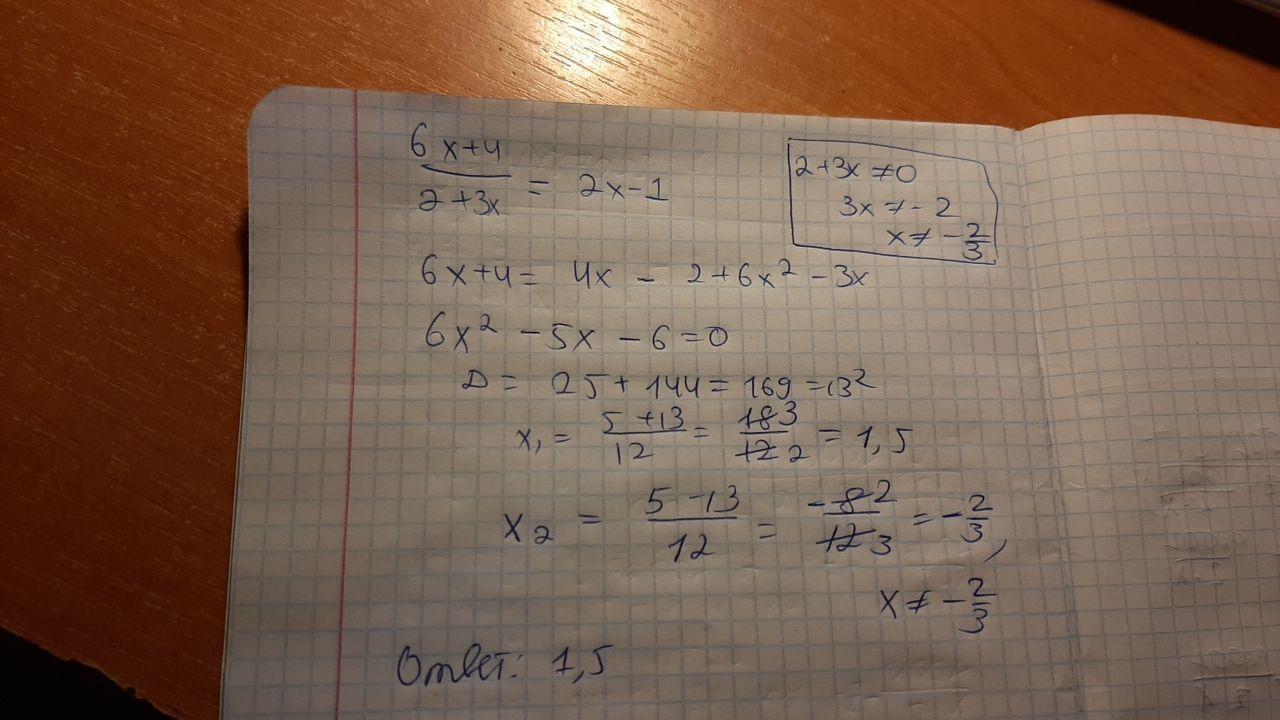 6x+4/2+3x = 2x-1
2+3x≠0
3x≠-2
x≠-2/3
6x+4= 4x - 2+6x² -3x
6x² -5x -6=0
D= 25+144=169=13²
x₁= 5+13/12 = 18 3/12 2 = 1,5
x₂ = 5-13/12 = -8 2/12 3 =-2/3,
x≠-2/3
Ответ: 1,5